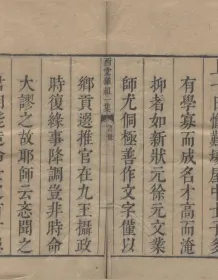 場屋士子多
有學寡而成名才高而淹
抑者如新狀元徐元文業
師尤侗極善作文字僅以
西堂雜組一集
鄉貢選推官在九王攝政
時復緣事降調豈非時命
大謬之故耶師云忞聞之